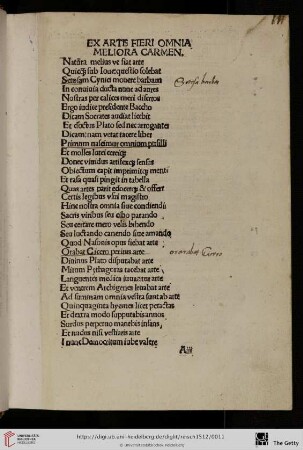 EX ARTE FIERI OMNIA
MELIORA CARMEN.
Natura melius ve fiat arte
Quicq; sub Ioue questio solebat
Setosam Cynici mouere barbam
Setosa barba
In conuiuia docta nunc ad aures
Nostras per calices meri disertos
Ergo iudice presidente Baccho
Dicam Socrates audiat licebit
Et doctus Plato sed nec arrogantes
Dicam nam vetat tacere liber
Primum nascimur omnium pusilli
Et molles lutei
Donec vinidus artifex; sensis
Obiectum capit imprimitq; menti
Et rasa quasi pingit in tabella
Quas artes parit edocetq; & offert
Certis legibus vsui magistro
Hinc nostra omnia siue condiendū
Sacris vinibus seu cibo parando
Seu certare mero velis bibendo
Seu luctando canendo siue amando
Quod Nasonis opus fiebat arte
Orabat Cicero peritus arte
orabat Cicero
Diuinus Plato disputabat arte
Mirum Pythagoras tacebat arte
Languentes medica iuuantur arte
Et venerem Archigenes leuabat arte
Ad summam omnia vestra sunt ab arte
Quinquaginta hyemes licet peractas
Et dextra modo supputabis annos
Surdus perpetuo manebis infans
Et nudus nisi vestiaris arte
I nunc Democritum iube valere
https://digi.ub.uni-heidelberg.de/diglit/reisch1512/0011
© Universitätsbibliothek Heidelberg
The Getty